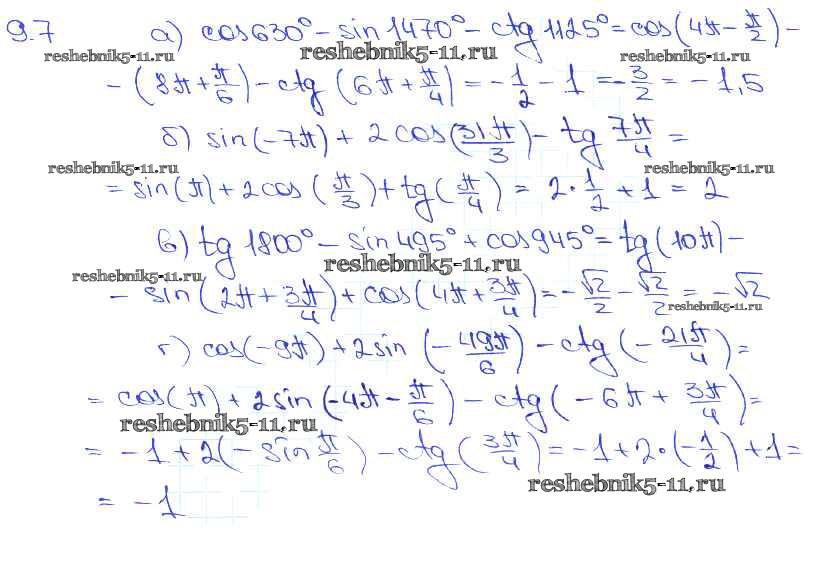 9.7 а) cos630° - sin1470° - ctg1125° = cos(4π - π/2) -
reshebnik5-11.ru reshebnik5-11.ru reshebnik5-11.ru
- (8π + π/6) - ctg(6π + π/4) = -1/2 - 1 = -3/2 = -1,5
б) sin(-7π) + 2cos(31π/3) - tg 7π/4 =
reshebnik5-11.ru reshebnik5-11.ru
= sin(π) + 2cos(π/3) + tg(π/4) = 2·1/2 + 1 = 2
в) tg1800° - sin495° + cos945° = tg(10π) -
reshebnik5-11.ru
reshebnik5-11.ru
- sin(2π + 3π/4) + cos(4π + 3π/4) = -√2/2 - √2/2 = -√2
reshebnik5-11.ru
г) cos(-9π) + 2sin(-49π/6) - ctg(-21π/4) =
= cos(π) + 2sin(-4π - π/6) - ctg(-6π + 3π/4) =
reshebnik5-11.ru
= -1 + 2(-sin π/6) - ctg(3π/4) = -1 + 2·(-1/2) + 1 =
reshebnik5-11.ru
= -1